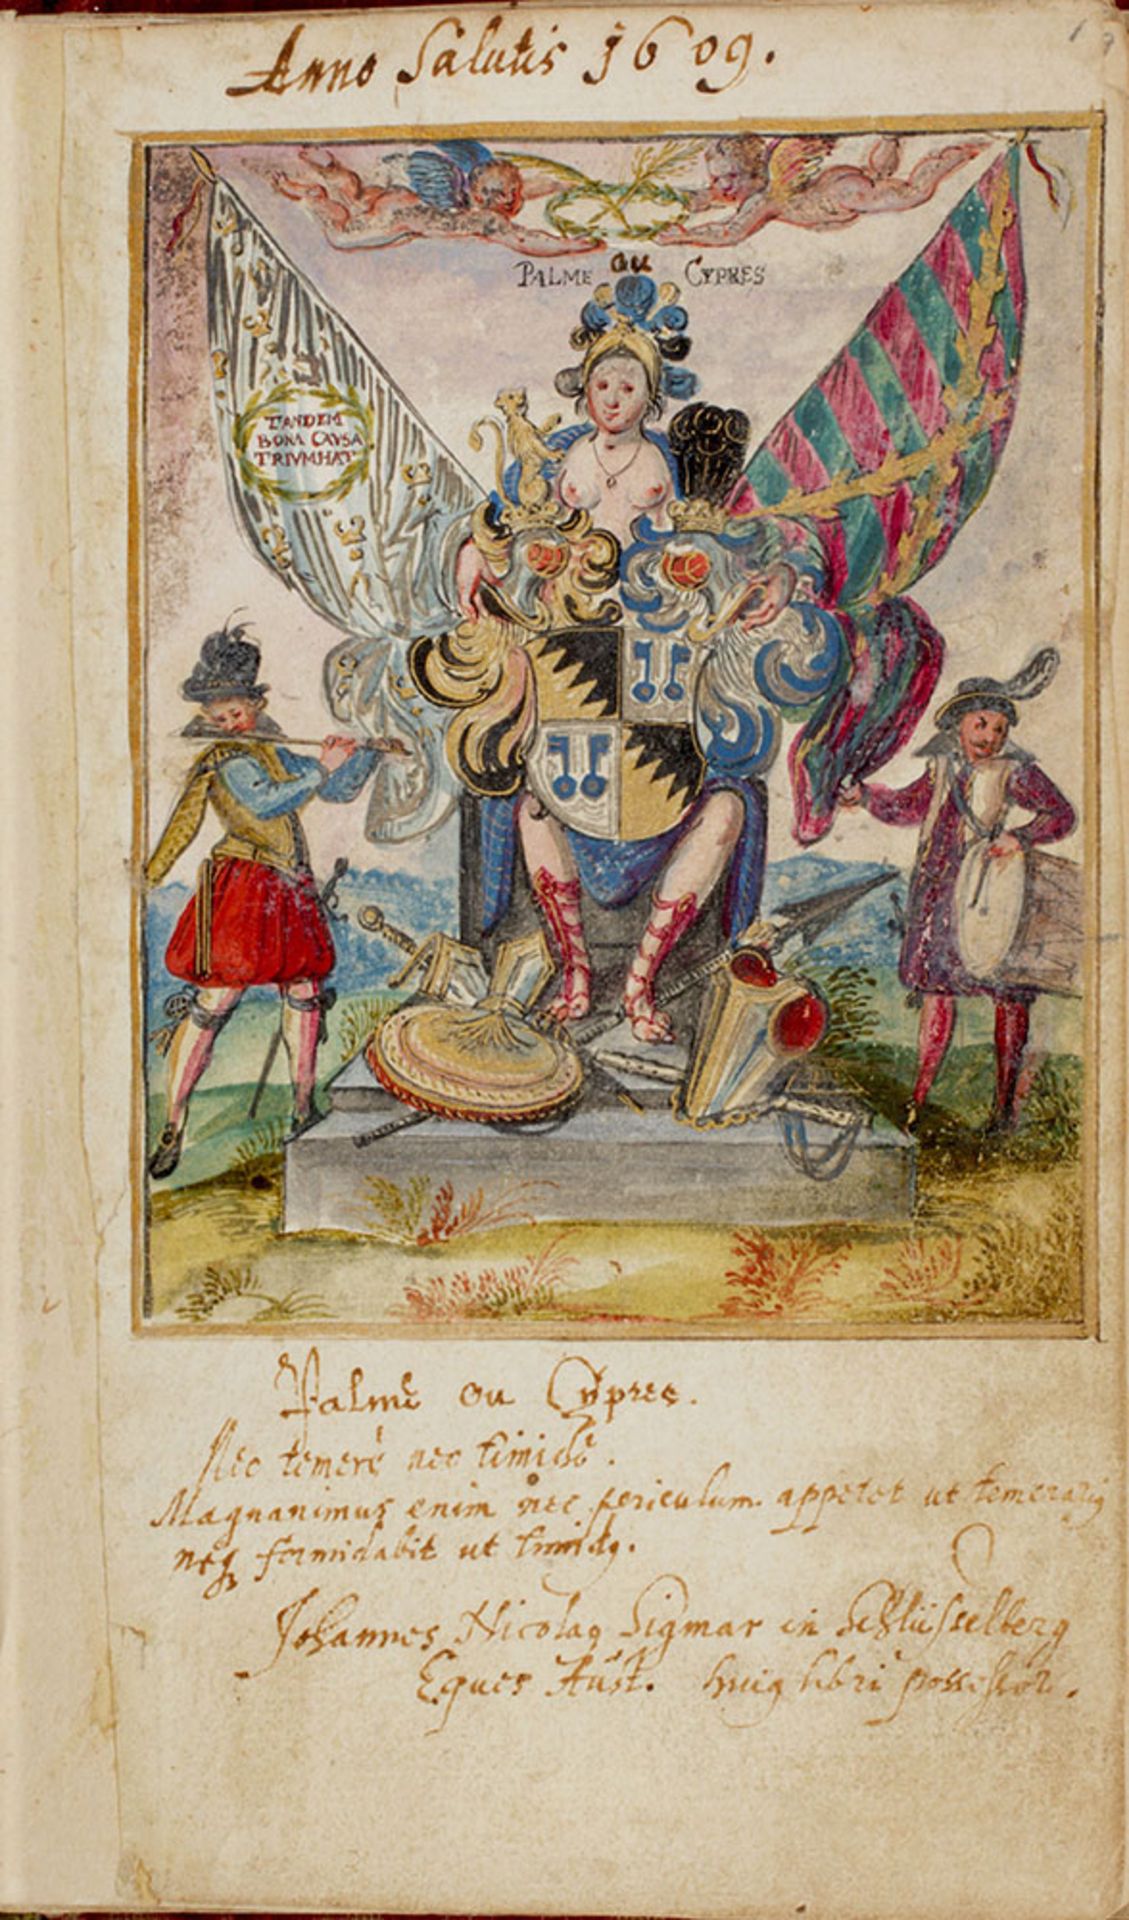 Anno Salutis 1609.
PALME OU CYPRES
TANDEM
BONA CAVSA
TRIVMHAT
Palme ou Cypres.
Nec temerè nec timidè.
Magnanimus enim nec periculum appetet ut temerariꝰ
neqꝫ formidabit ut timidꝰ.
Johannes Nicolaꝰ Sigmar in Schlüsselberg
Eques Aust. huiꝰ libri possessor.